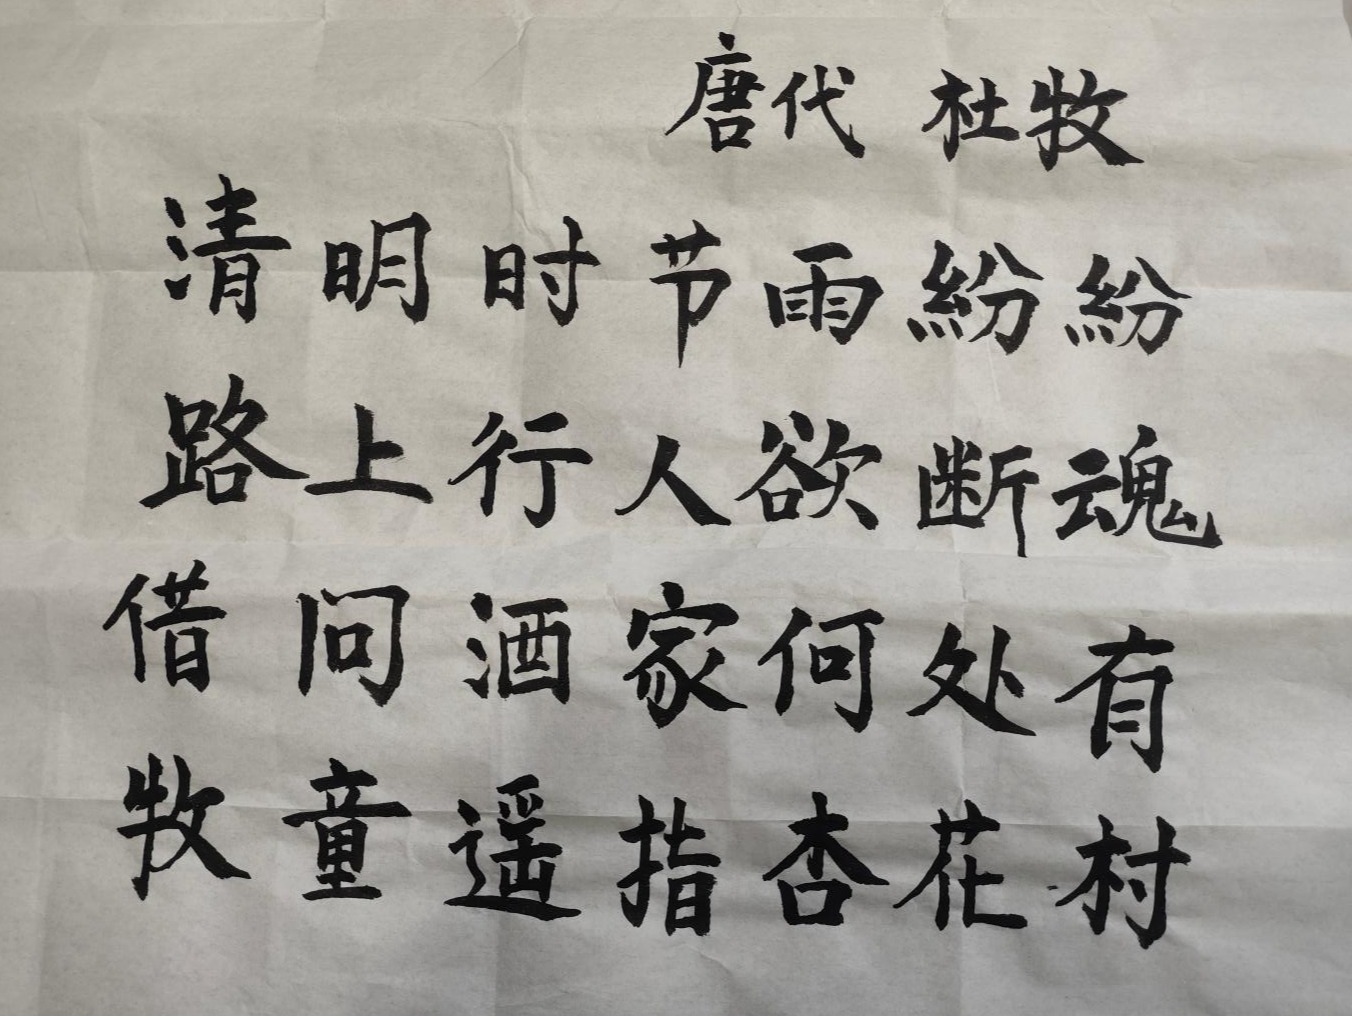 唐代 杜牧
清明时节雨紛紛
路上行人欲断魂
借问酒家何处有
牧童遥指杏花村